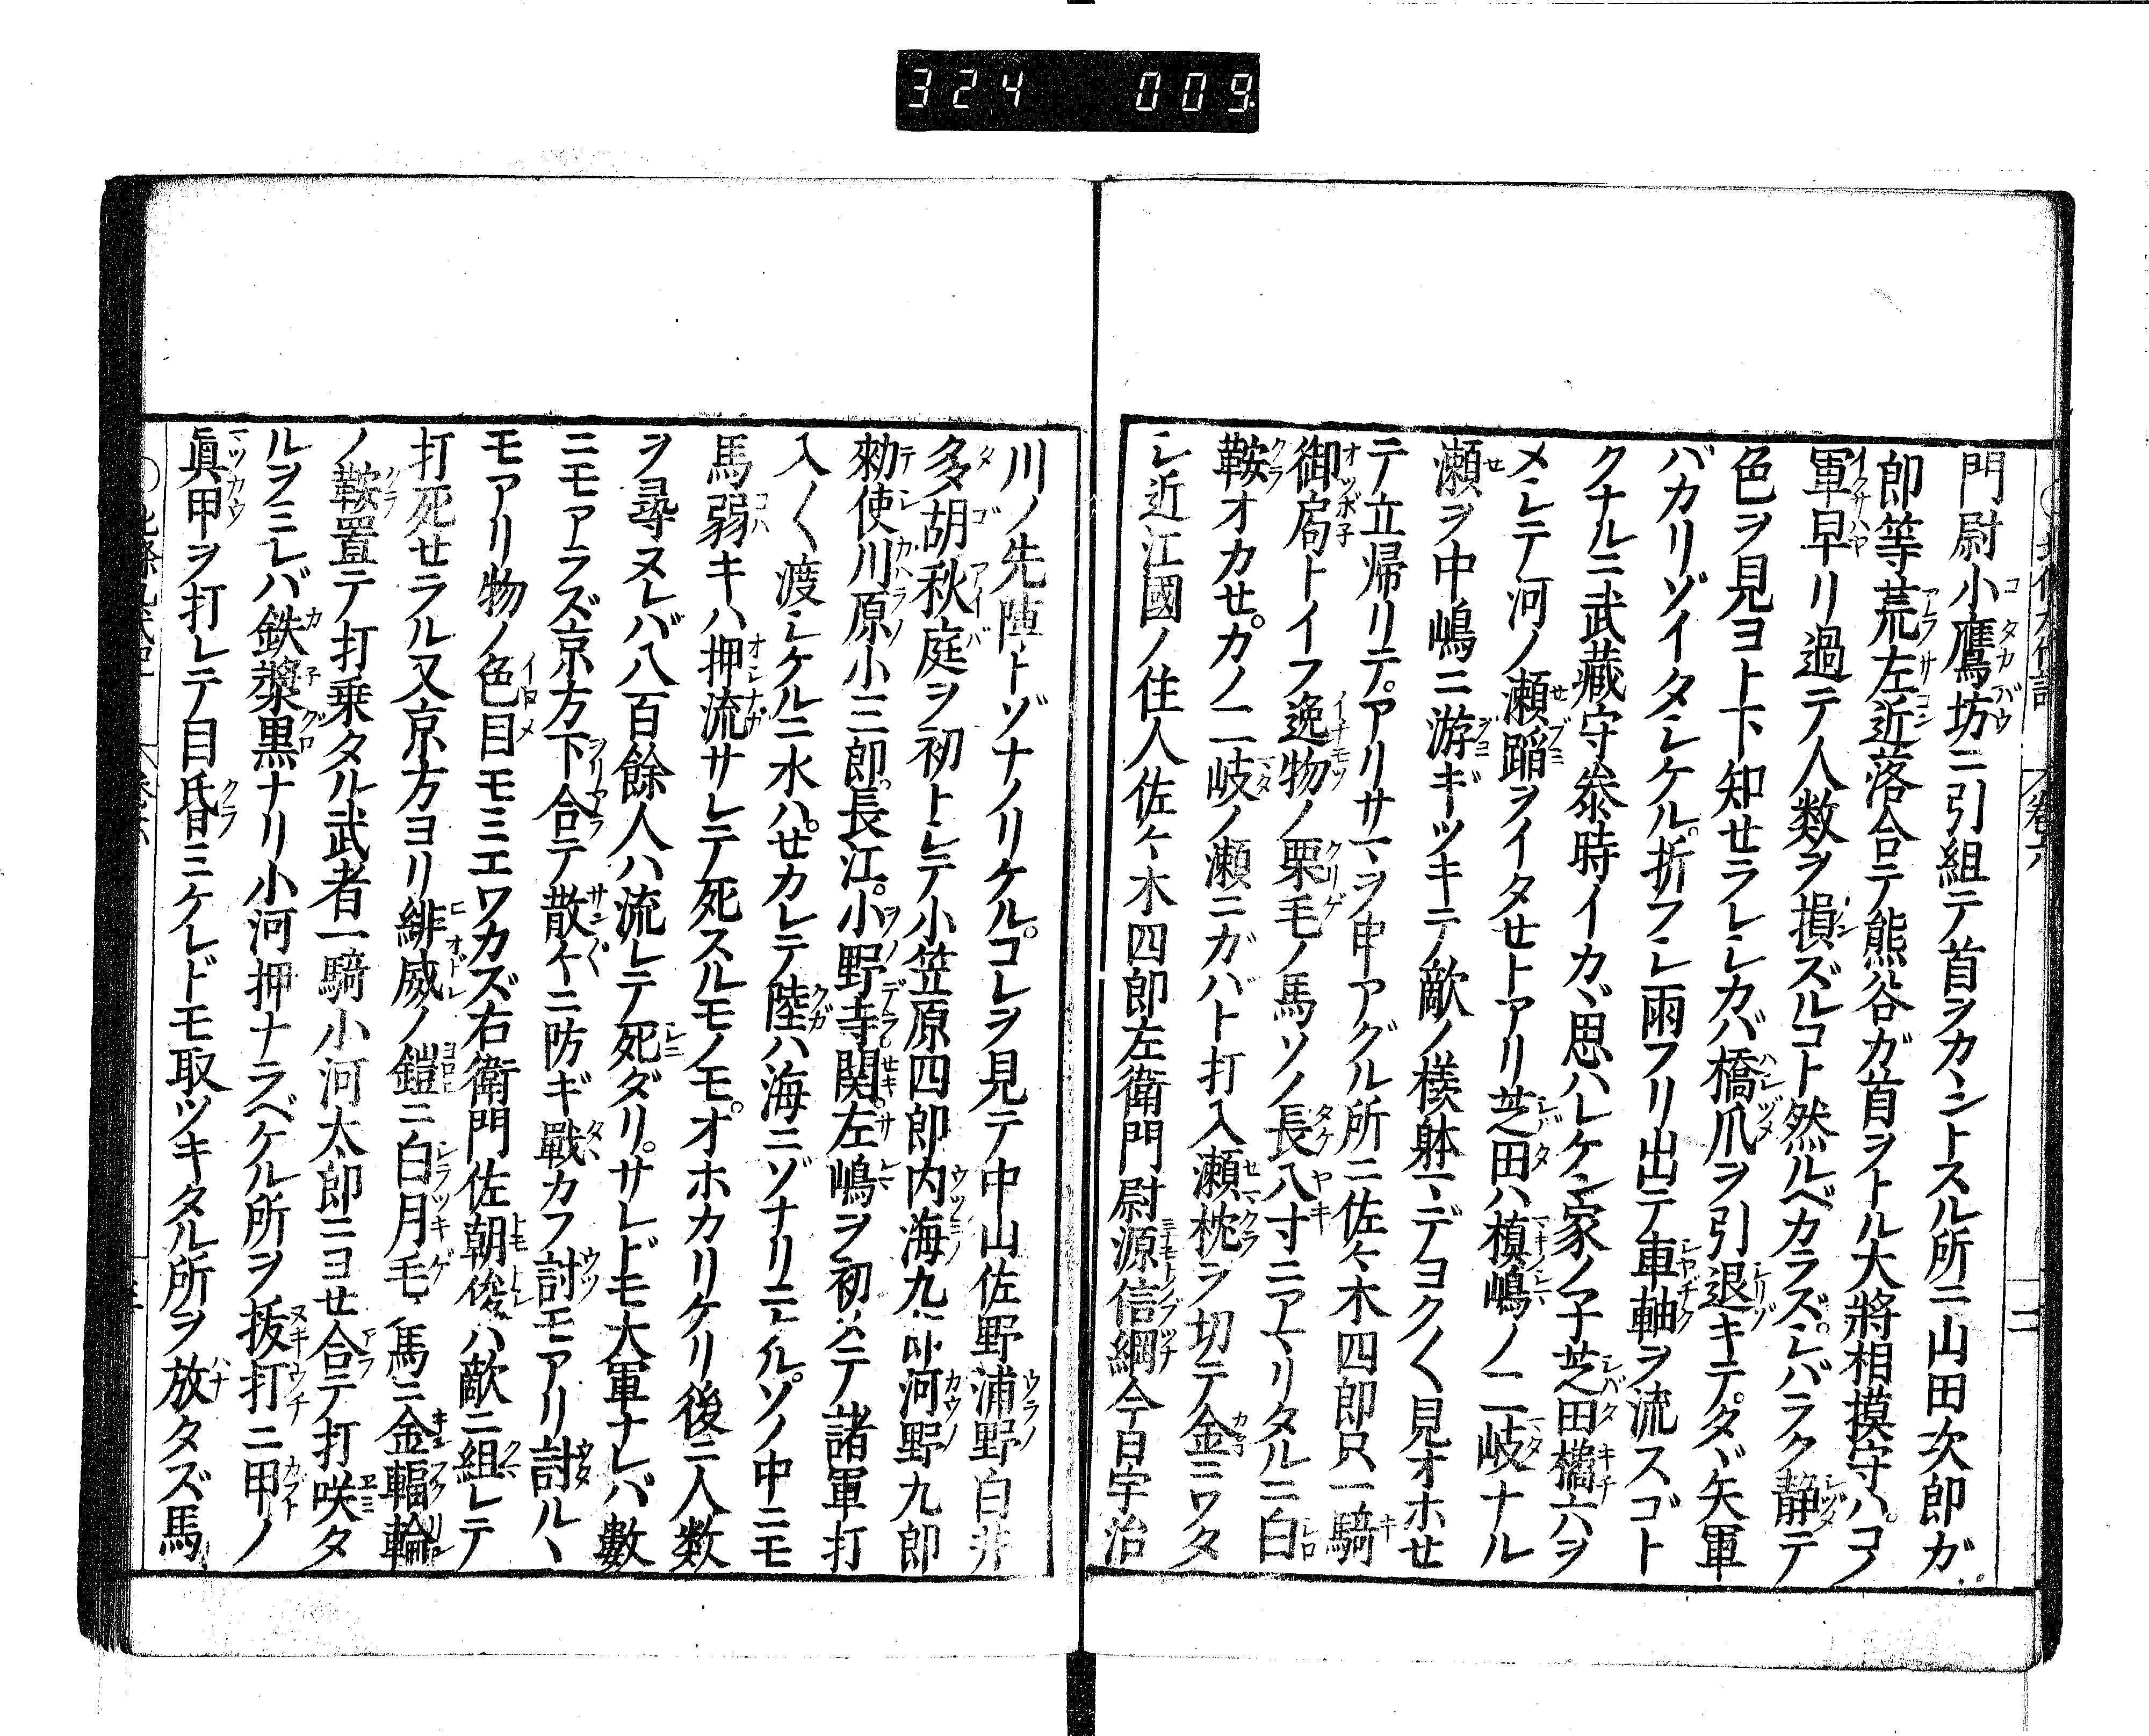 324 009
卷六
二
門尉小鷹坊ニ引組テ首ヲカヽントスル所ニ山田次郎ガ
郎等荒左近落合テ熊谷ガ首ヲトル大將相摸守ハコノ
軍早リ過テ人数ヲ損ズルコト然ルベカラズシバラク静テ
色ヲ見ヨト下知セラレシカバ橋爪ヲ引退キテタヾ矢軍
バカリゾイタシケル折フシ雨フリ出テ車軸ヲ流スゴト
クナルニ武藏守泰時イカヾ思ハレケン家ノ子芝田橘六ヲ
メシテ河ノ瀬蹈ヲイタセトアリ芝田ハ槙嶋ノ二岐ナル
瀬ヲ中嶋ニ游ギツキテノ敵ノ様躰マデヨク〱見オホセ
テ立帰リテアリサマヲ申アグル所ニ佐々木四郎只一騎
御局トイフ逸物ノ栗毛ノ馬ソノ長八寸ニアマリタルニ白
鞍オカセカノ二岐ノ瀬ニガバト打入瀬枕ヲ切テ金ミワタ
シ近江國ノ住人佐々木四郎左衛門尉源信綱今日宇治
川ノ先陣トゾナノリケルコレヲ見テ中山佐野浦野白井
多胡秋庭ヲ初トシテ小笠原四郎内海九郎河野九郎
勅使川原小三郎長江小野寺関左嶋ヲ初メテ諸軍打
入〱渡シケルニ水ハセカレテ陸ハ海ニゾナリニケルソノ中ニモ
馬弱キハ押流サレテ死スルモノモオホカリケリ後ニ人数
ヲ尋ヌレバ八百餘人ハ流レテ死ダリサレドモ大軍ナレバ數
ニモアラズ京方下合テ散々ニ防ギ戰カフ討モアリ討ルヽ
モアリ物ノ色目モミエワカズ右衛門佐朝俊ハ敵ニ組シテ
打死セラル又京方ヨリ緋威ノ鎧ニ白月毛ノ馬ニ金輻輪
ノ鞍置テ打乗タル武者一騎小河太郎ニヨセ合テ打咲タ
ルヲミレバ鉄漿黒ナリ小河押ナラベケル所ヲ抜打ニ甲ノ
眞甲ヲ打レテ目昏ミケレドモ取ツキタル所ヲ放タズ馬